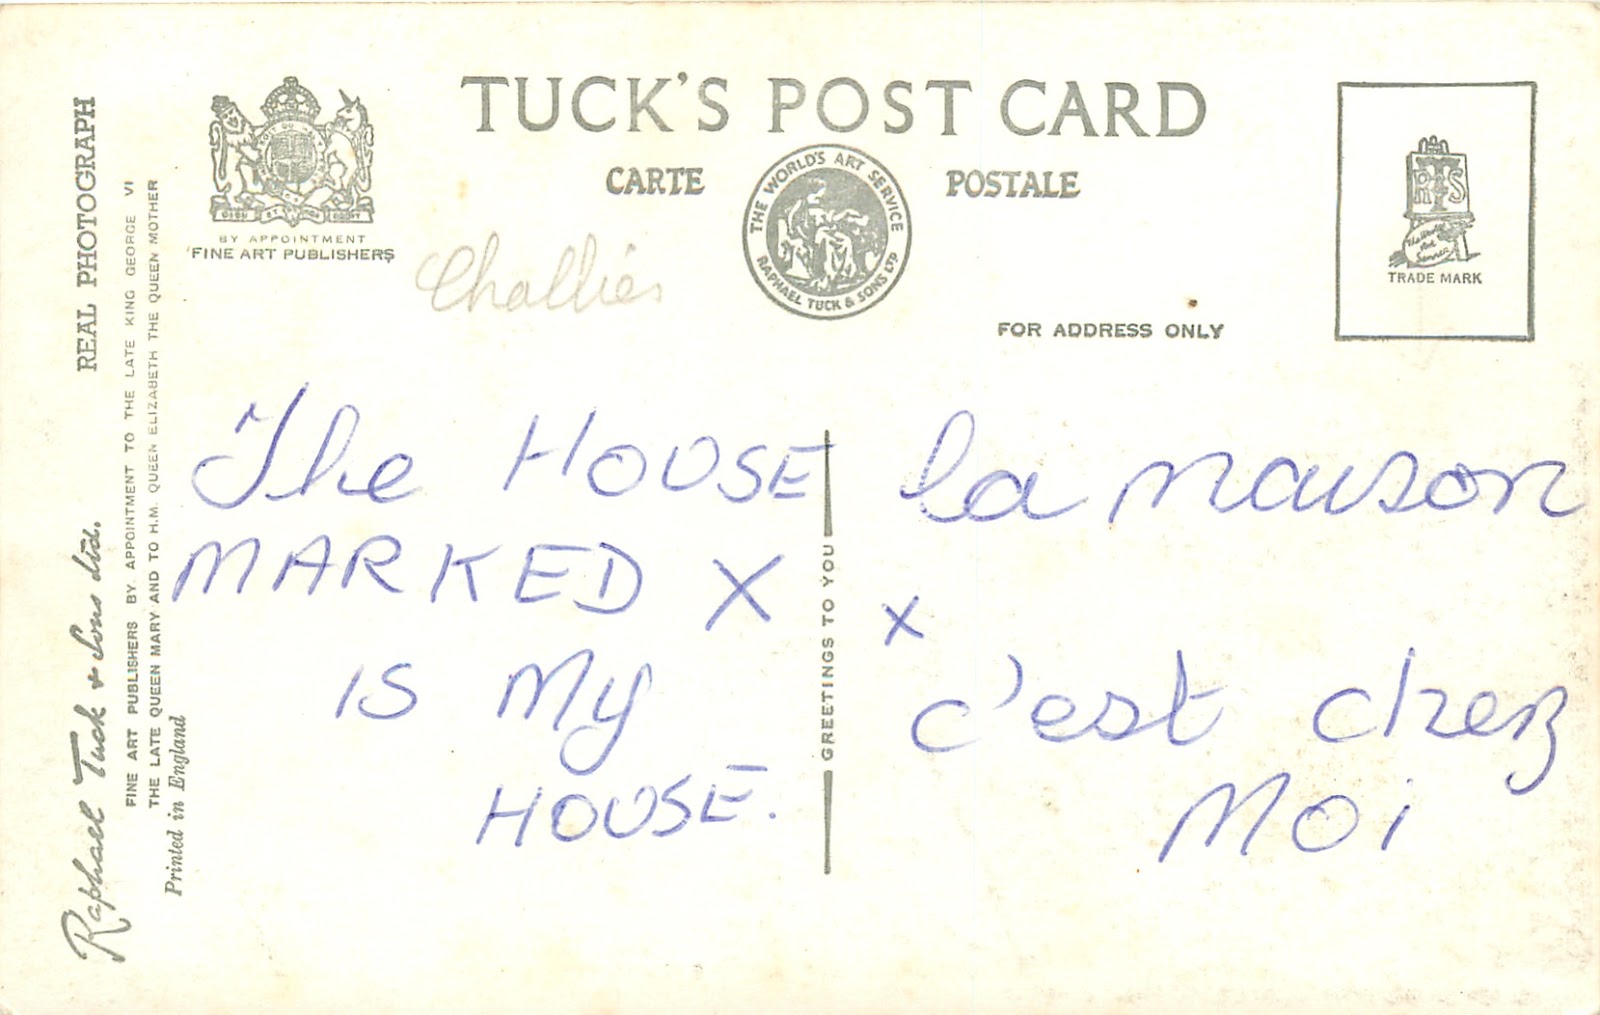 TUCK'S POST CARD
CARTE POSTALE
BY APPOINTMENT
FINE ART PUBLISHERS
THE WORLD'S ART SERVICE
RAPHAEL TUCK & SONS LTD
RTS
TRADE MARK
FOR ADDRESS ONLY
REAL PHOTOGRAPH
Raphael Tuck & Sons Ltd.
FINE ART PUBLISHERS BY APPOINTMENT TO THE LATE KING GEORGE VI
THE LATE QUEEN MARY AND TO H.M. QUEEN ELIZABETH THE QUEEN MOTHER
Printed in England
GREETINGS TO YOU
The HOUSE
MARKED X
is My
HOUSE.
la maison
x
c'est chez
Moi